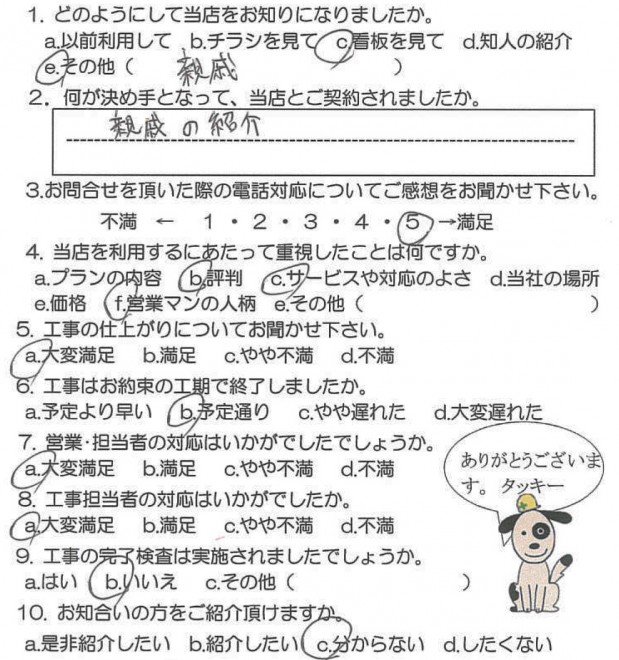 1. どのようにして当店をお知りになりましたか。
a.以前利用して b.チラシを見て c.看板を見て d.知人の紹介
e.その他（ 親戚 ）
2. 何が決め手となって、当店とご契約されましたか。
親戚の紹介
3.お問合せを頂いた際の電話対応についてご感想をお聞かせ下さい。
不満 ← 1・2・3・4・5 →満足
4. 当店を利用するにあたって重視したことは何ですか。
a.プランの内容 b.評判 c.サービスや対応のよさ d.当社の場所
e.価格 f.営業マンの人柄 e.その他（ ）
5. 工事の仕上がりについてお聞かせ下さい。
a.大変満足 b.満足 c.やや不満 d.不満
6. 工事はお約束の工期で終了しましたか。
a.予定より早い b.予定通り c.やや遅れた d.大変遅れた
7. 営業・担当者の対応はいかがでしたでしょうか。
a.大変満足 b.満足 c.やや不満 d.不満
ありがとうございま
す。 タッキー
8. 工事担当者の対応はいかがでしたか。
a.大変満足 b.満足 c.やや不満 d.不満
9. 工事の完了検査は実施されましたでしょうか。
a.はい b.いいえ c.その他（ ）
10. お知合いの方をご紹介頂けますか。
a.是非紹介したい b.紹介したい c.分からない d.したくない